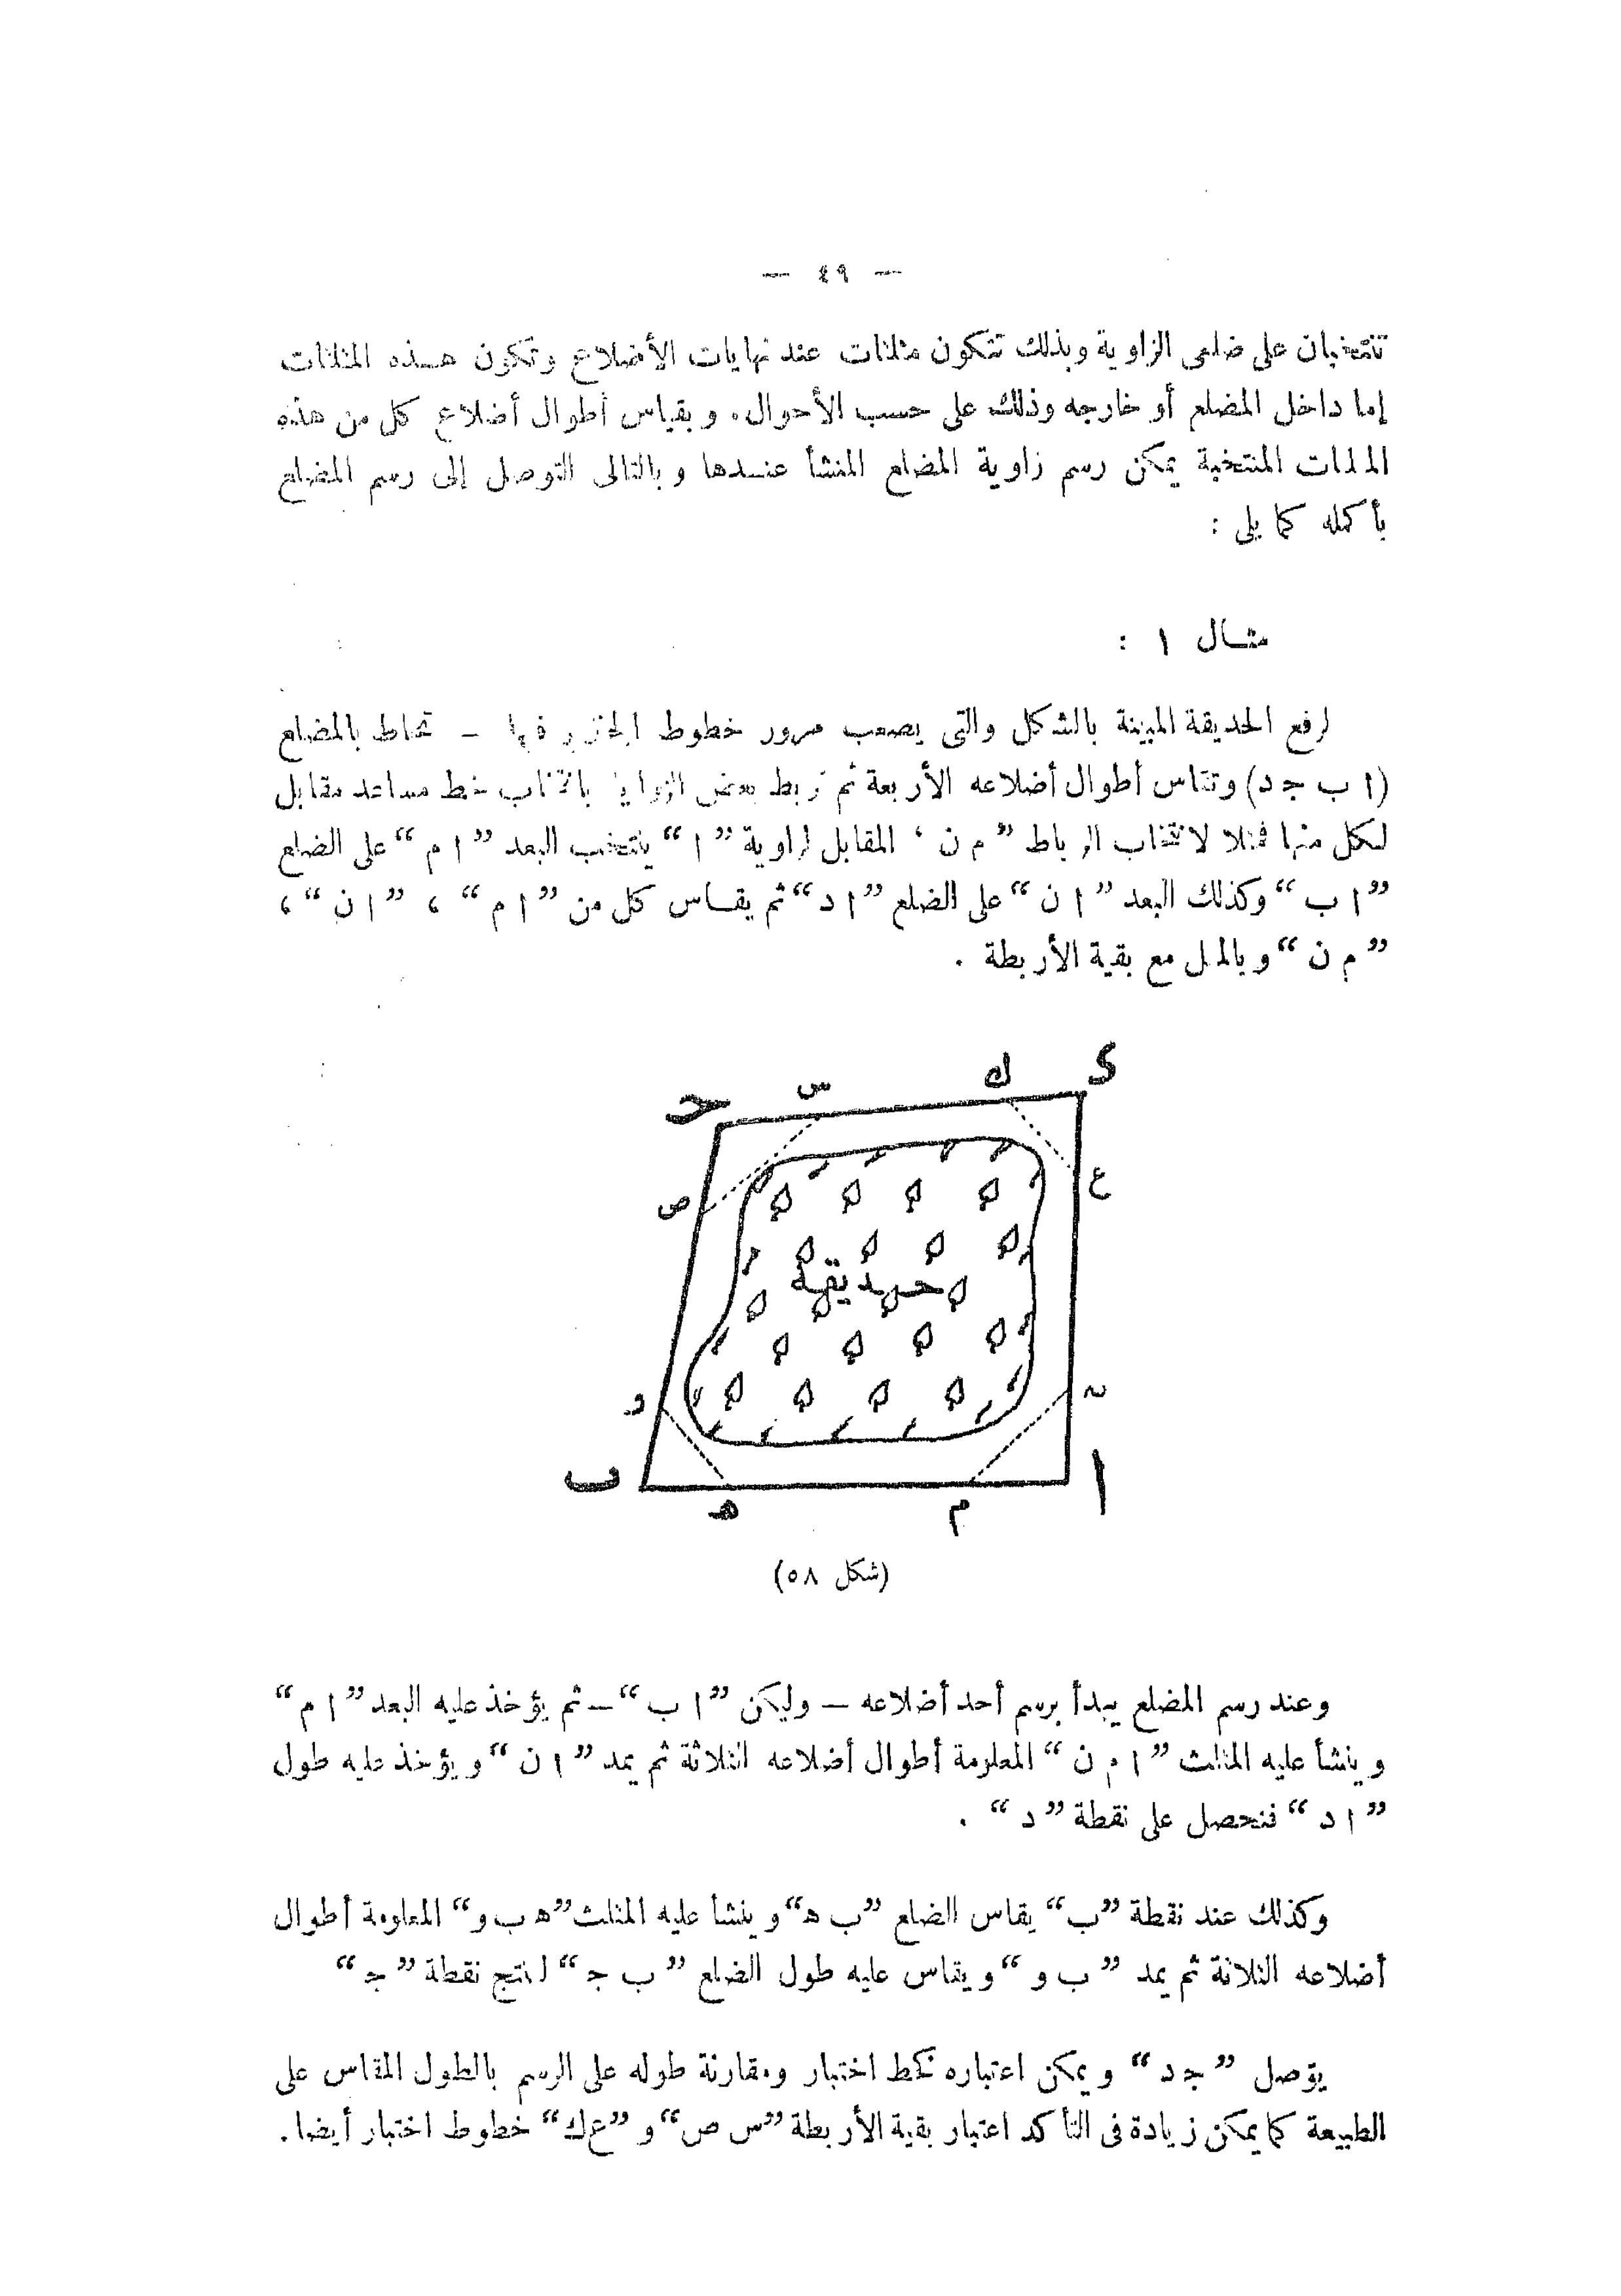 — ٤٩ —
تنتخبان على ضلعى الزاوية وبذلك تتكون مثلثات عند نهايات الأضلاع وتكون هـذه المثلثات
إما داخل المضلع أو خارجه وذلك على حسب الأحوال. وبقياس أطوال أضلاع كل من هذه
المثلثات المنتخبة يمكن رسم زاوية المضلع المنشأ عنـدها وبالتالى التوصل إلى رسم المضلع
بأكمله كما يلى :
مثـال ١ :
لرفع الحديقة المبينة بالشكل والتى يصعب مرور خطوط الجنزير فيها – تحاط بالمضلع
(ا ب ج د) وتقاس أطوال أضلاعه الأربعة ثم تربط بعض الزوايا بانتخاب خط مساعد مقابل
لكل منها فمثلا لانتخاب الرباط ”م ن‘ المقابل لزاوية ”ا“ ينتخب البعد ”ا م“ على الضلع
”ا ب“ وكذلك البعد ”ا ن“ على الضلع ”ا د“ ثم يقـاس كل من ”ا م“ ، ”ا ن“ ،
”م ن“ وبالمثل مع بقية الأربطة .
د
ك
س
ج
ع
ص
حـديقة
ن
و
ا
ب
م
ه
(شكل ٥٨)
وعند رسم المضلع يبدأ برسم أحد أضلاعه – وليكن ”ا ب“ – ثم يؤخذ عليه البعد ”ا م“
وينشأ عليه المثلث ”ا م ن“ المعلومة أطوال أضلاعه الثلاثة ثم يمد ”ا ن“ ويؤخذ عليه طول
”ا د“ فنحصل على نقطة ”د“ .
وكذلك عند نقطة ”ب“ يقاس الضلع ”ب ه“ وينشأ عليه المثلث ”ه ب و“ المعلومة أطوال
أضلاعه الثلاثة ثم يمد ”ب و“ ويقاس عليه طول الضلع ”ب ج“ لنتج نقطة ”ج“
يوصل ”ج د“ ويمكن اعتباره كخط اختبار ومقارنة طوله على الرسم بالطول المقاس على
الطبيعة كما يمكن زيادة فى التأكد اعتبار بقية الأربطة ”س ص“ و ”ع ك“ خطوط اختبار أيضا.